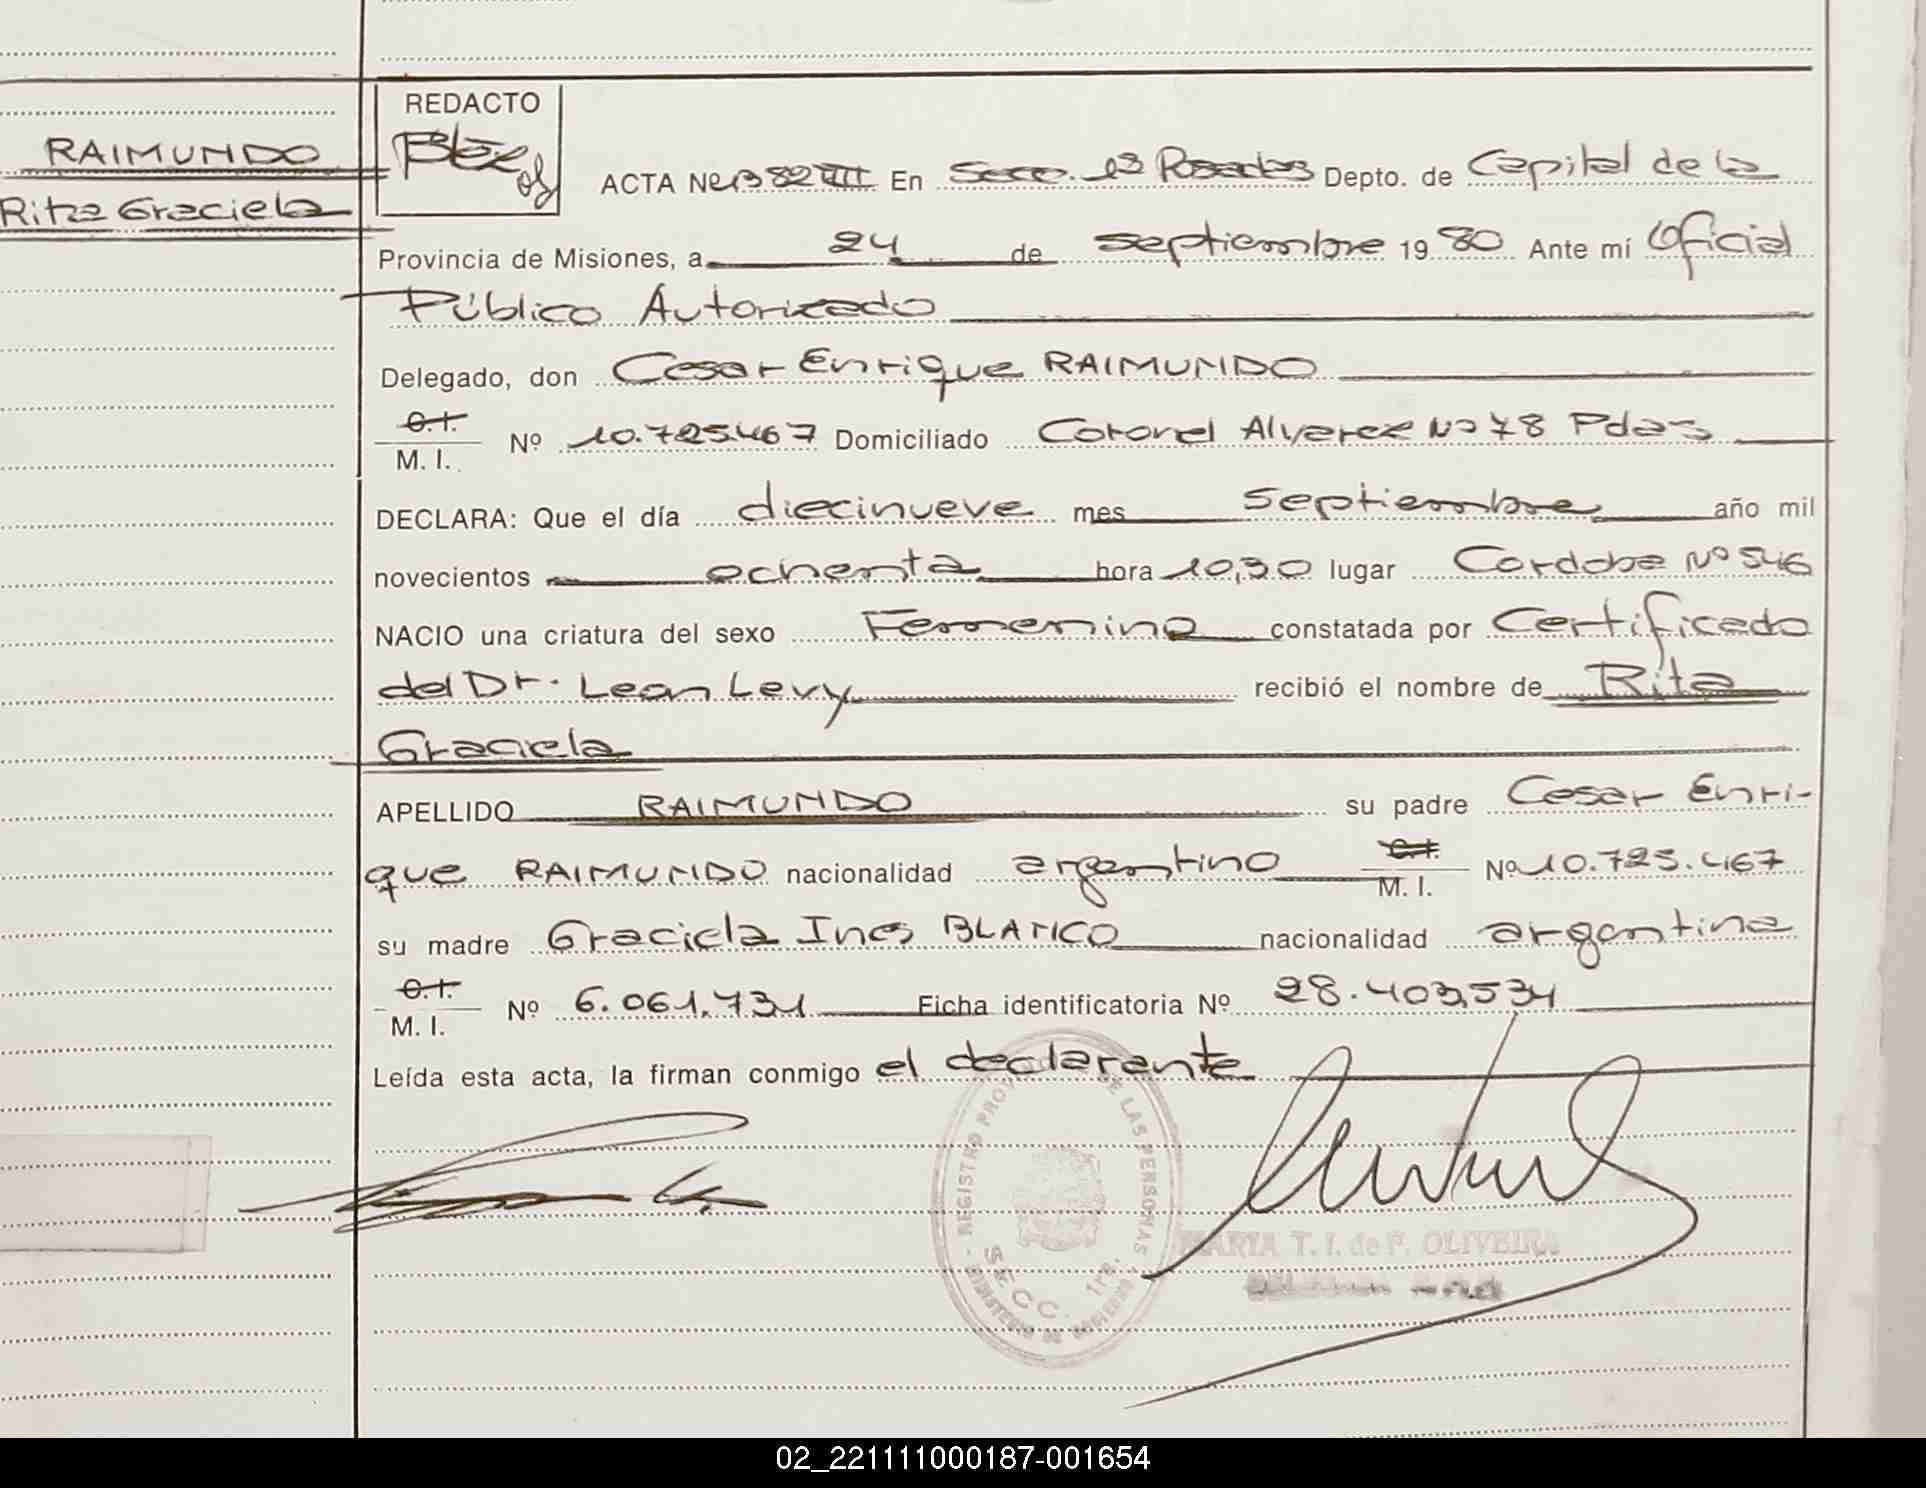 RAIMUNDO
Rita Graciela
REDACTO
ACTA Nº 1382 III En Secc. 1ª Posadas Depto. de Capital de la
Provincia de Misiones, a 24 de septiembre 1980 Ante mí Oficial
Público Autorizado
Delegado, don Cesar Enrique RAIMUNDO
C.I.
M. I. Nº 10.725.467 Domiciliado Coronel Alvarez Nº 78 Pdas
DECLARA: Que el día diecinueve mes septiembre año mil
novecientos ochenta hora 10,30 lugar Cordoba Nº 546
NACIO una criatura del sexo Femenino constatada por Certificado
del Dr. Leon Levy recibió el nombre de Rita
Graciela
APELLIDO RAIMUNDO su padre Cesar Enri-
que RAIMUNDO nacionalidad argentino C.I. M. I. Nº 10.725.467
su madre Graciela Ines BLANCO nacionalidad argentina
C.I.
M. I. Nº 6.061.731 Ficha identificatoria Nº 28.403.534
Leída esta acta, la firman conmigo el declarante
REGISTRO PROV DE LAS PERSONAS
SECC. 1ra.
MINISTERIO DE GOBIERNO
MARIA T. I. de F. OLIVEIRA
02_221111000187-001654